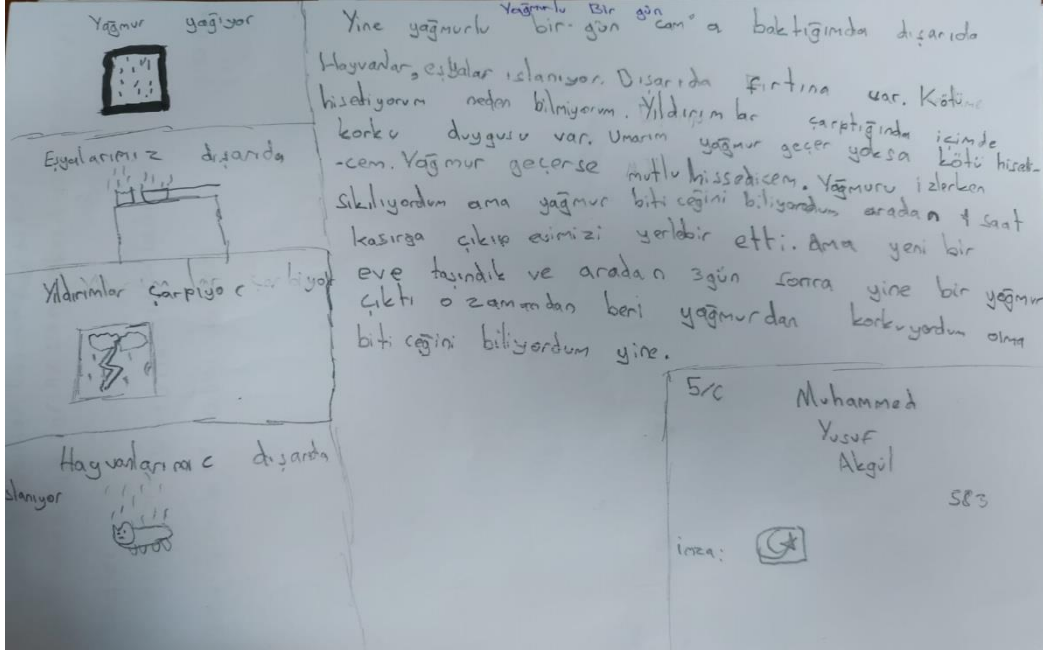 Yağmur yağıyor
Eşyalarımız dışarıda
Yıldırımlar çarpıyor
Hayvanlarımız dışarıda
ıslanıyor
Yağmurlu Bir gün
Yine yağmurlu bir gün cam'a baktığımda dışarıda
Hayvanlar, eşyalar ıslanıyor. Dışarıda fırtına var. Kötü
hisediyorum neden bilmiyorum. Yıldırımlar çarptığında içimde
korku duygusu var. Umarım yağmur geçer yoksa kötü hisek-
-cem. Yağmur geçerse mutlu hissedicem. Yağmuru izlerken
sıkılıyordum ama yağmur biticeğini biliyordum aradan 1 saat
kasırga çıkıp evimizi yerlebir etti. Ama yeni bir
eve taşındık ve aradan 3gün sonra yine bir yağmur
çıktı o zamandan beri yağmurdan korkuyordum olma
biticeğini biliyordum yine.
5/C Muhammed
Yusuf
Akgül
583
imza: